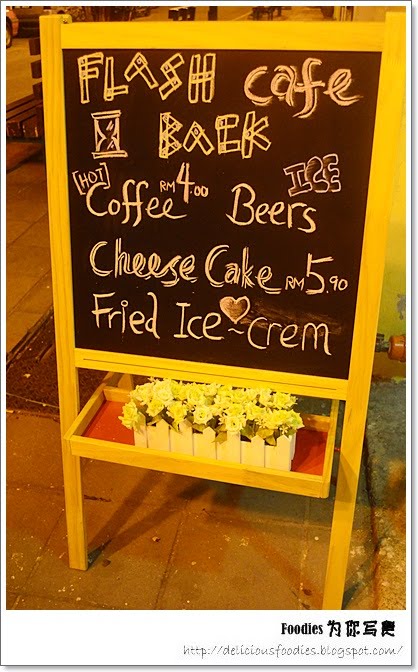 FLASH cafe
BACK
[HOT] ICE
Coffee RM 4.00 Beers
Cheese Cake RM 5.90
Fried Ice~crem
Foodies 为你写煮
http://deliciousfoodies.blogspot.com/